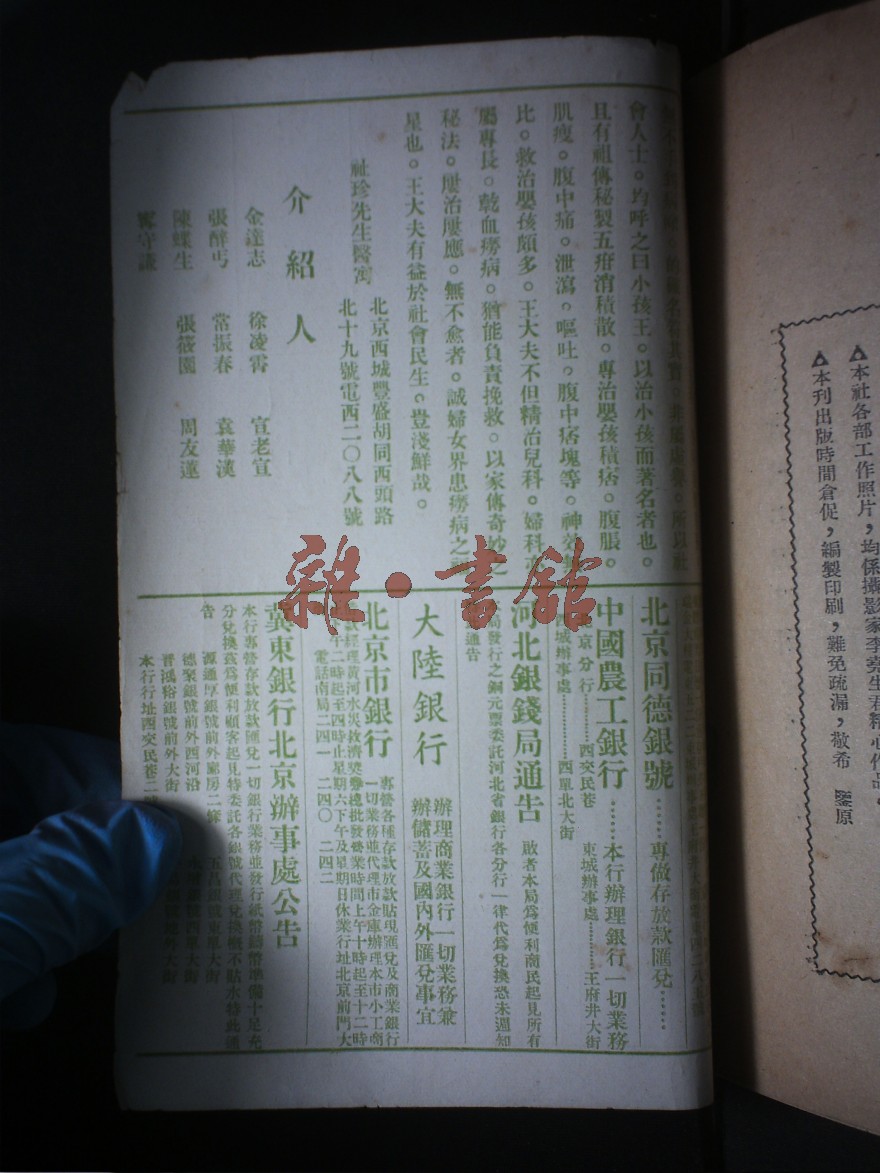 會人士。均呼之曰小孩王。以治小孩而著名者也。
且有祖傳秘製五疳消積散。專治嬰孩積痞。腹脹。
肌瘦。腹中痛。泄瀉。嘔吐。腹中痞塊等。神效無
比。救治嬰孩頗多。王大夫不但精治兒科。婦科亦
屬專長。乾血癆病。猶能負責挽救。以家傳奇妙之
秘法。屢治屢應。無不愈者。誠婦女界患癆病之
星也。王大夫有益於社會民生。豈淺鮮哉。
祉珍先生醫寓
北京西城豐盛胡同西頭路
北十九號電西二〇八八號
介紹人
金達志 徐凌霄 宣老宣
張醉丐 常振春 袁華漢
陳蝶生 張筱園 周友蓮
守謙
北京同德銀號
專做存放款匯兌
中國農工銀行
本行辦理銀行一切業務
京分行 西交民巷
東城辦事處 王府井大街
城辦事處 西單北大街
河北銀錢局通告
敬者本局為便利商民起見所有
局發行之銅元票委託河北省銀行各分行一律代為兌換恐未週知
通告
大陸銀行
辦理商業銀行一切業務兼
辦儲蓄及國內外匯兌事宜
北京市銀行
專營各種存款放款貼現匯兌及商業銀行
一切業務並代理市金庫辦理本市小工商
經理黃河水災救濟獎券總批發營業時間上午十時起至十二時
午二時起至四時止星期六下午及星期日休業行址北京前門大
電話南局二四一 二四〇 二四二
冀東銀行北京辦事處公告
本行專營存款放款匯兌一切銀行業務並發行紙幣鑄幣準備十足充
分兌換茲為便利顧客起見特委託各銀號代理兌換概不貼水特此通
告
源通厚銀號前外廊房二條 五昌銀號東單大街
德聚銀號前外西河沿 西單大街
晉鴻裕銀號前外大街 外大街
本行行址西交民巷二
雜·書館
本社各部工作照片，均係攝影家李堯生君精心作品。
本刊出版時間倉促，編製印刷，難免疏漏，敬希 鑒原